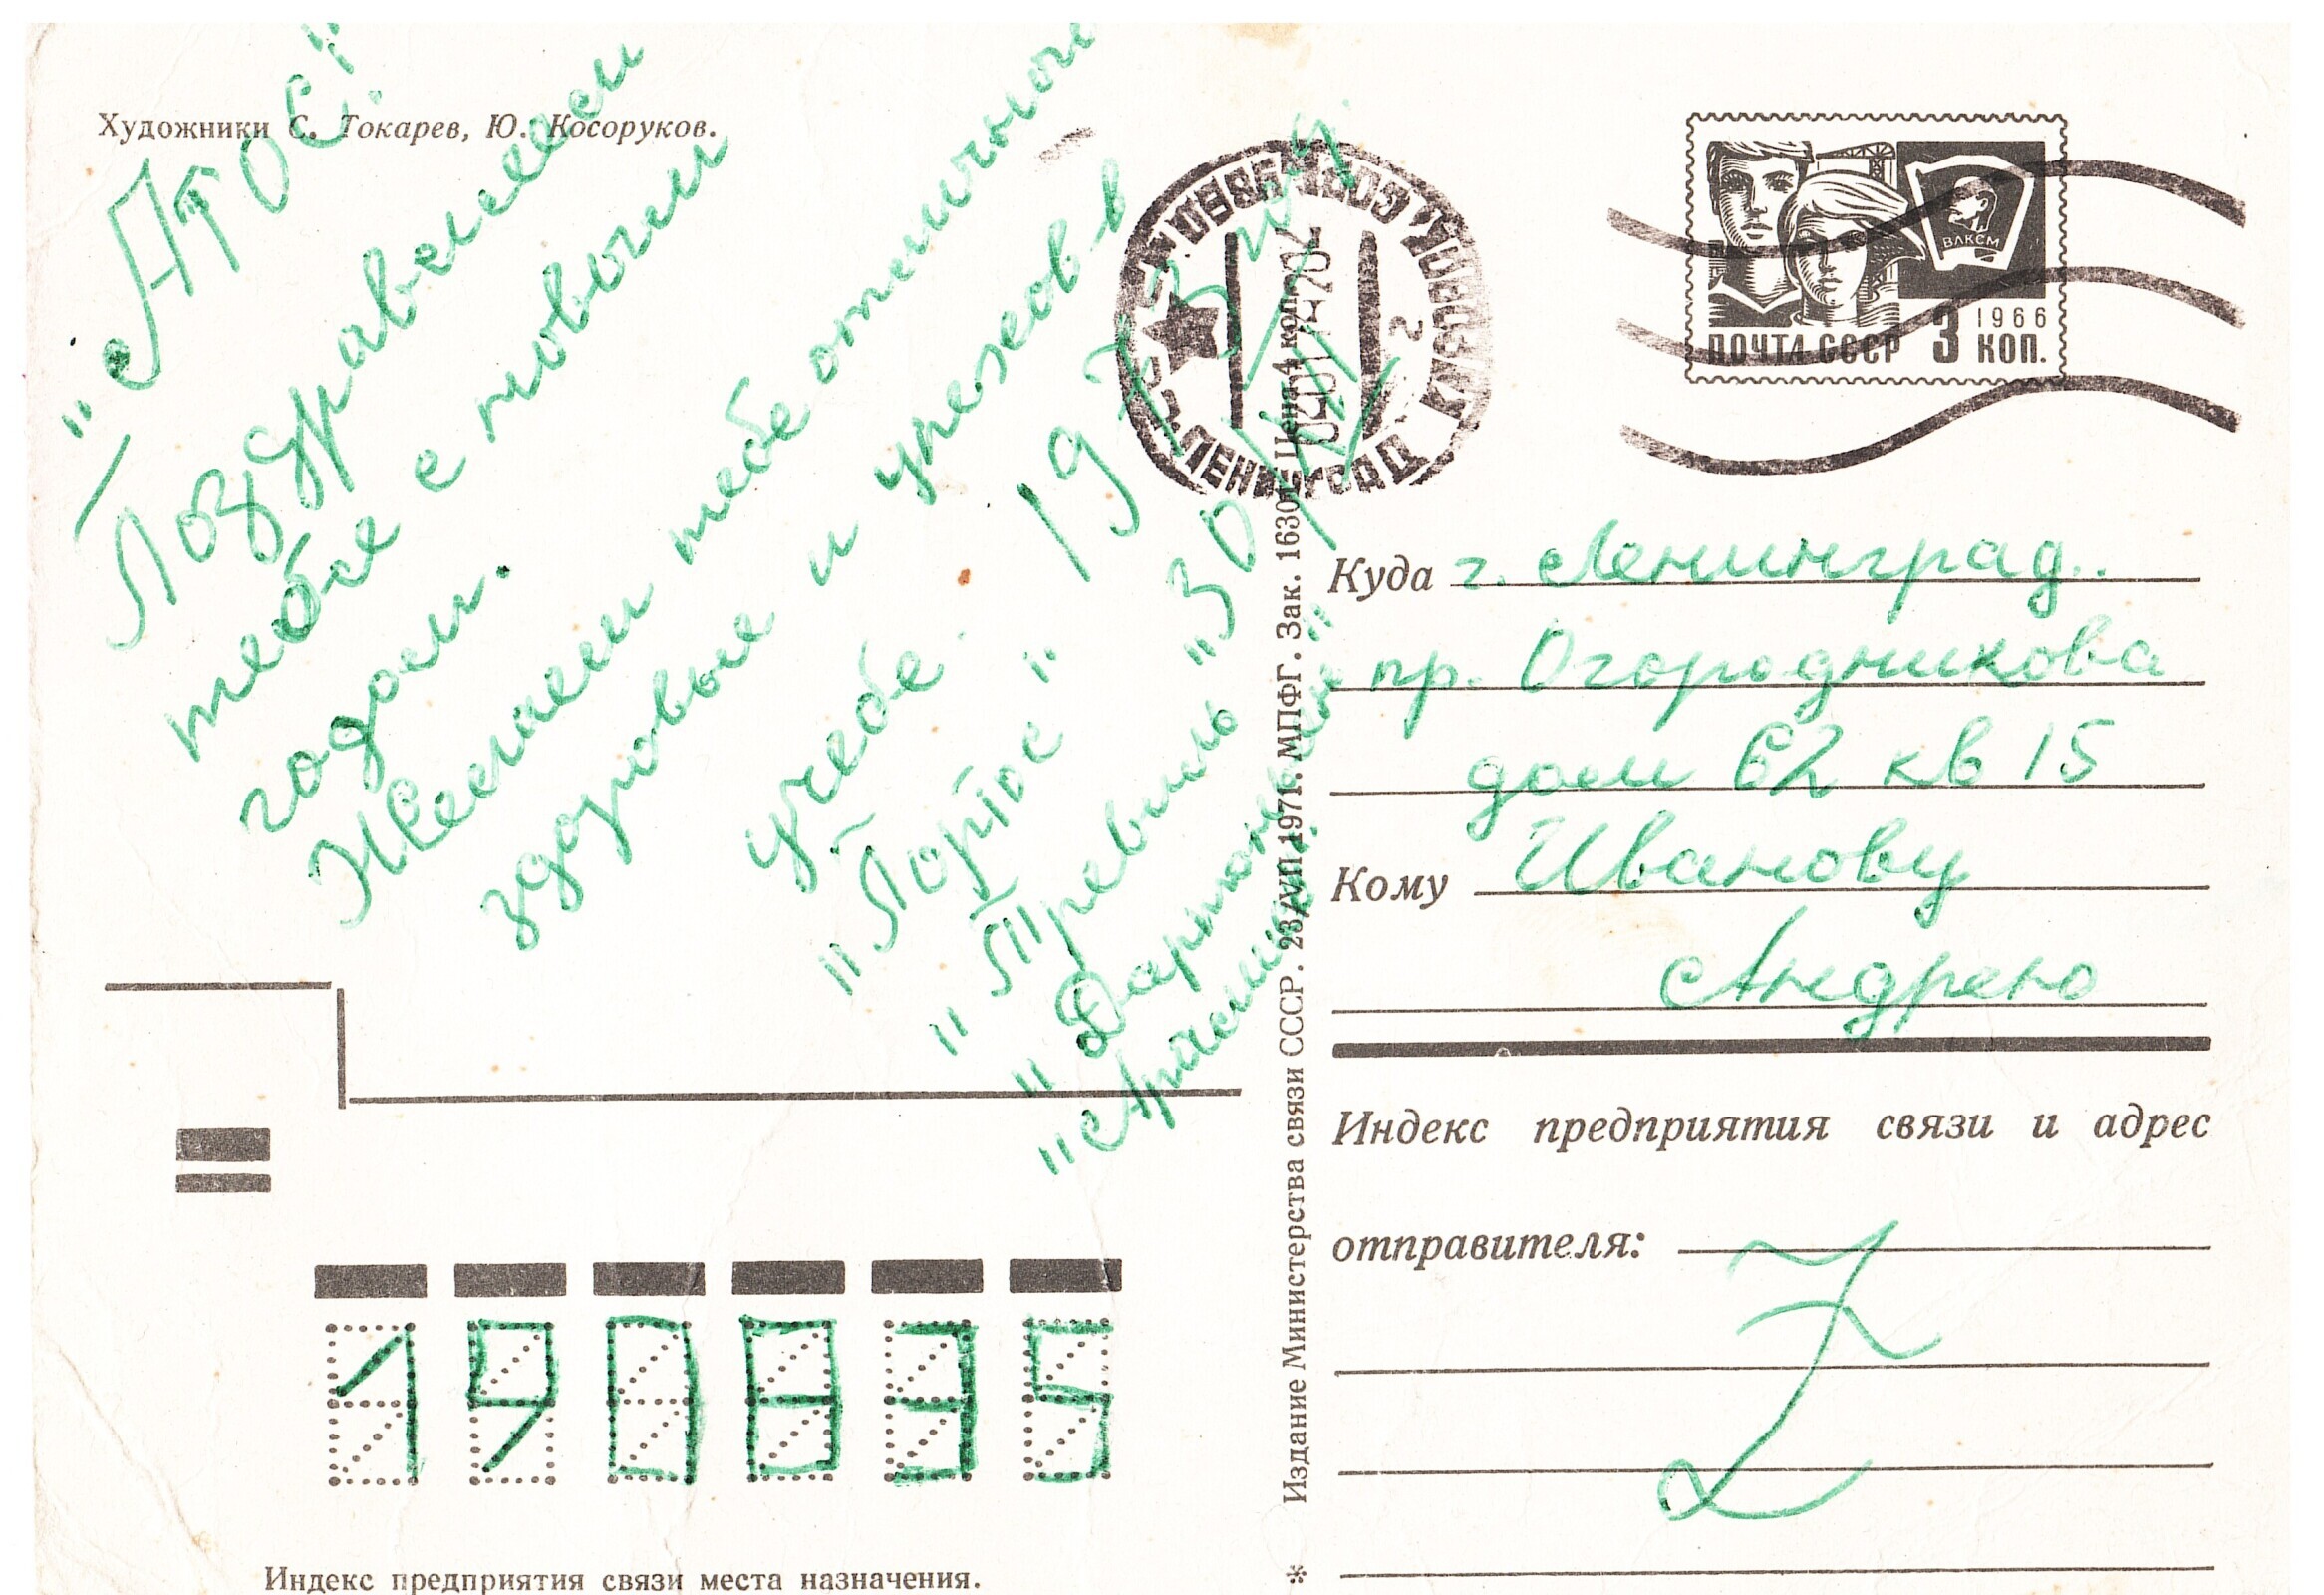 Художники С. Токарев, Ю. Косоруков.
"Атос"!
Поздравляем
тебя с новым
годом.
Желаем тебе отличного
здоровья и успехов в
учебе.
1973 год
"Портос"
"Тревиль"
"Дартаньян"
"Арамис"
"30
ПОЧТА СССР 3 КОП.
1966
ВЛКСМ
ЛЕНИНГРАД
2
Куда г. Ленинград.
пр. Огородникова
дом 62 кв 15
Кому Иванову
Андрею
Индекс предприятия связи и адрес
отправителя:
Издание Министерства связи СССР. 23/VII 1971. МПФГ. Зак. 1630. Цена 4 коп.
190835
Индекс предприятия связи места назначения.